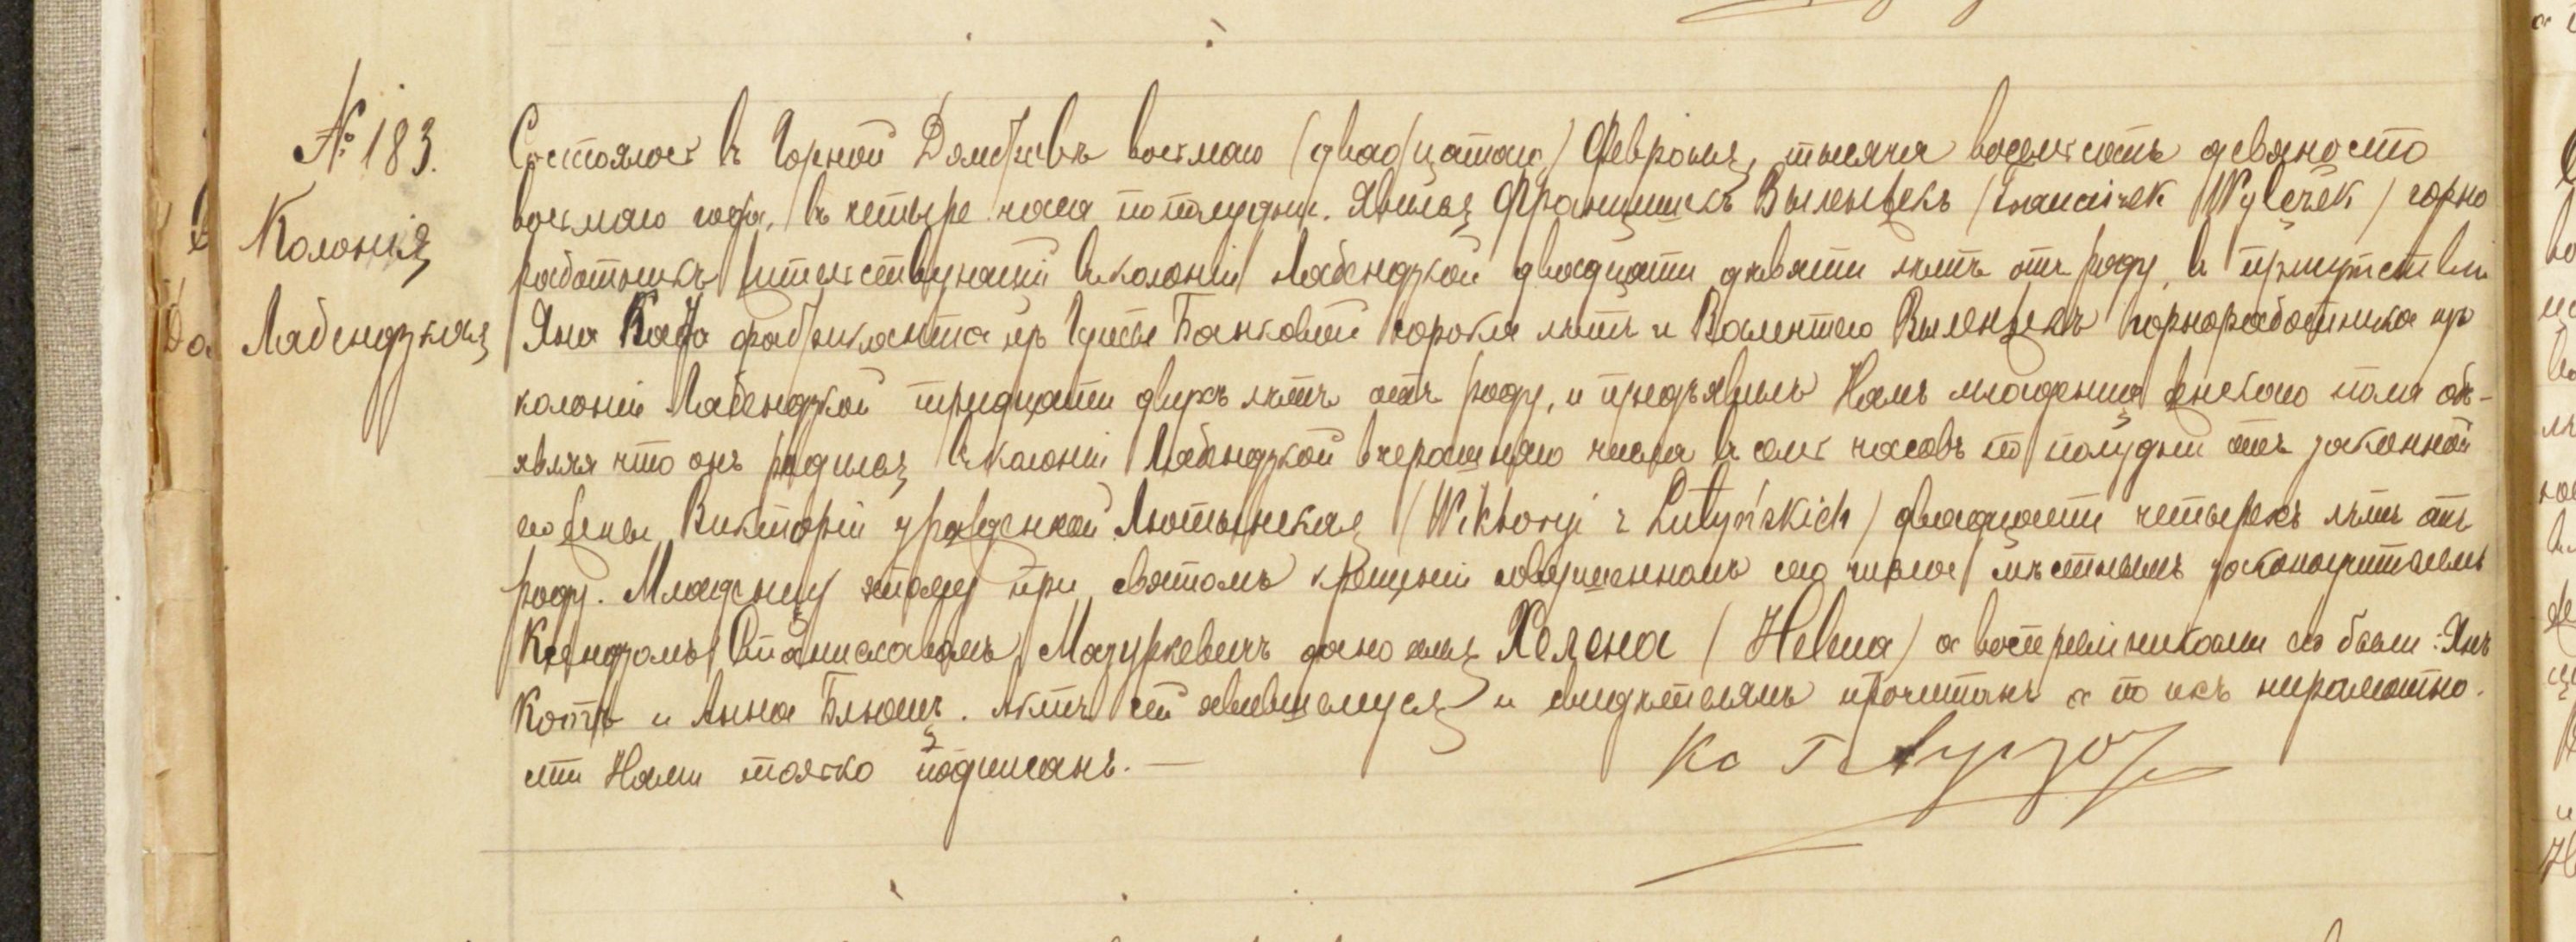 № 183.
Колонія
Лабендзкая
Состоялось въ Горной Домбровѣ восьмаго (двадцатаго) Февраля, тысяча восемьсотъ девяносто
восьмаго года, въ четыре часа по полудни. Явился Францишекъ Выленжекъ (Franciszek Wylężek) горно
работникъ жительствующій въ колоніи Лабендзкой двадцати девяти лѣтъ отъ роду, въ присутствіи
Яна Кота фабриканта изъ Гуты Банковой сорока лѣтъ и Валентего Выленжекъ горноработника изъ
колоніи Лабендзкой тридцати двухъ лѣтъ отъ роду, и предъявилъ Намъ младенца женскаго пола объ-
являя что онъ родился въ колоніи Лабендзкой вчерашняго числа въ семь часовъ по полудни отъ законной
его жены Викторіи урожденной Лютынская (Wiktoryi z Lutyńskich) двадцати четырехъ лѣтъ отъ
роду. Младенцу этому при святомъ крещеніи совершенномъ сего числа мѣстнымъ законоучителемъ
Ксендзомъ Станиславомъ Мазуркевичъ дано имя Хелена (Helena) а воспреемниками его были: Янъ
Котъ и Анна Блющъ. Актъ сей явившемуся и свидѣтелямъ прочитанъ а по ихъ неграмотно-
сти Нами только подписанъ.—
Кс Г